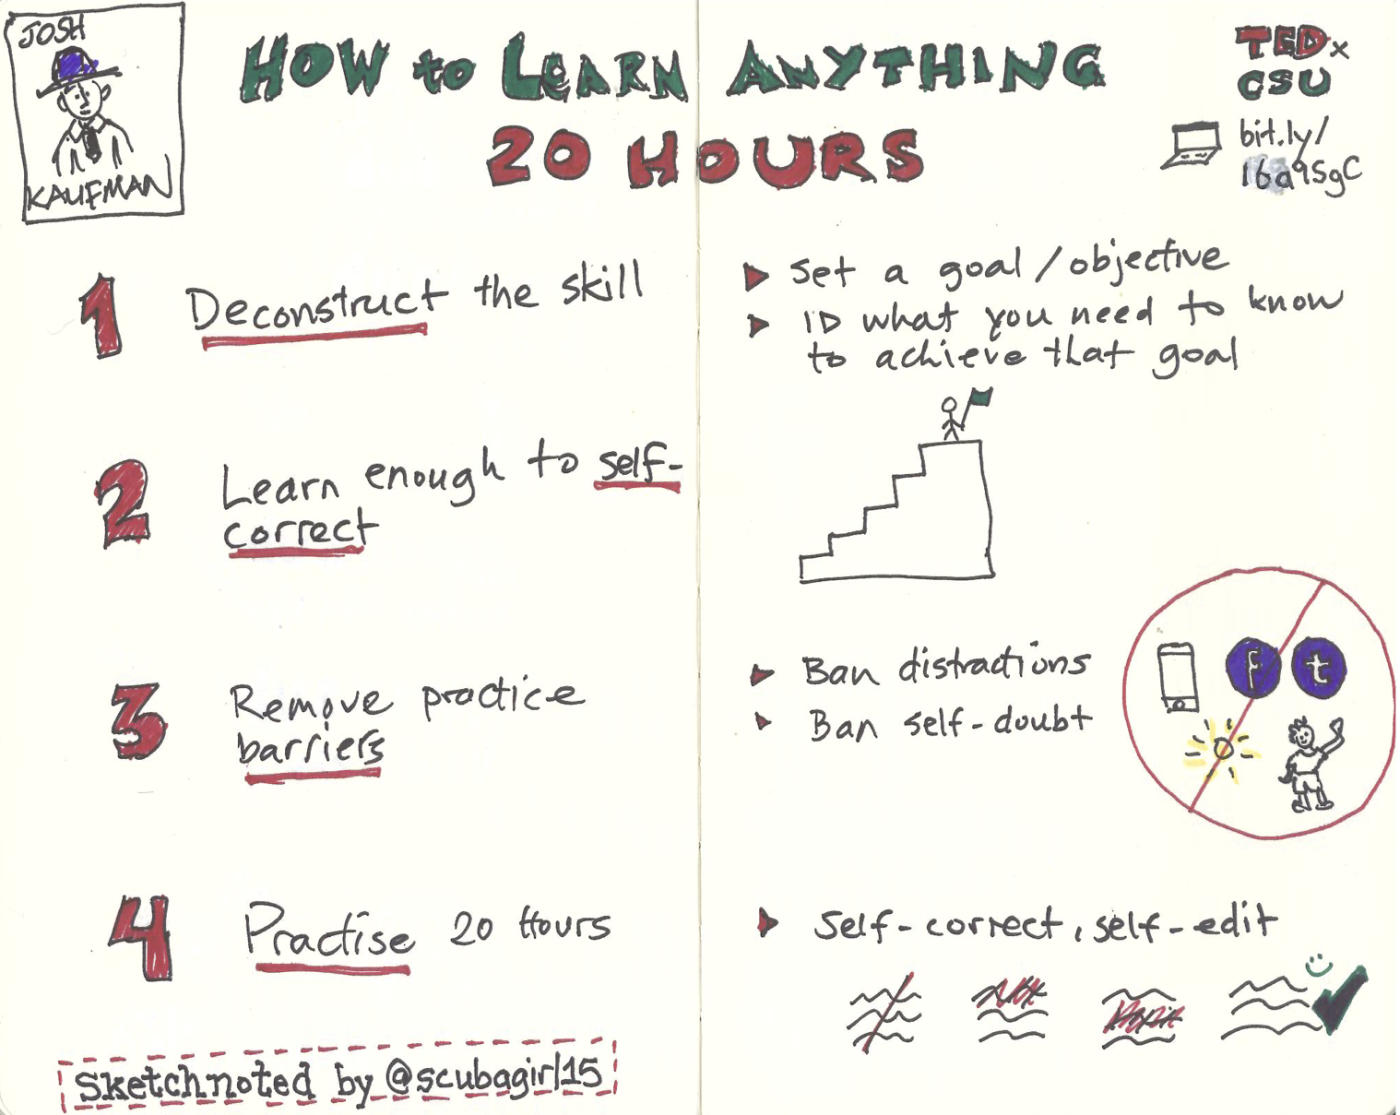 JOSH
KAUFMAN
HOW to LEARN ANYTHING
20 HOURS
TEDx
CSU
bit.ly/
16a9SgC
1 Deconstruct the skill
▶ Set a goal/objective
▶ ID what you need to know
to achieve that goal
2 Learn enough to self-
correct
3 Remove practice
barriers
▶ Ban distractions
▶ Ban self-doubt
f t
4 Practise 20 Hours
▶ Self-correct, self-edit
Sketchnoted by @scubagirl15